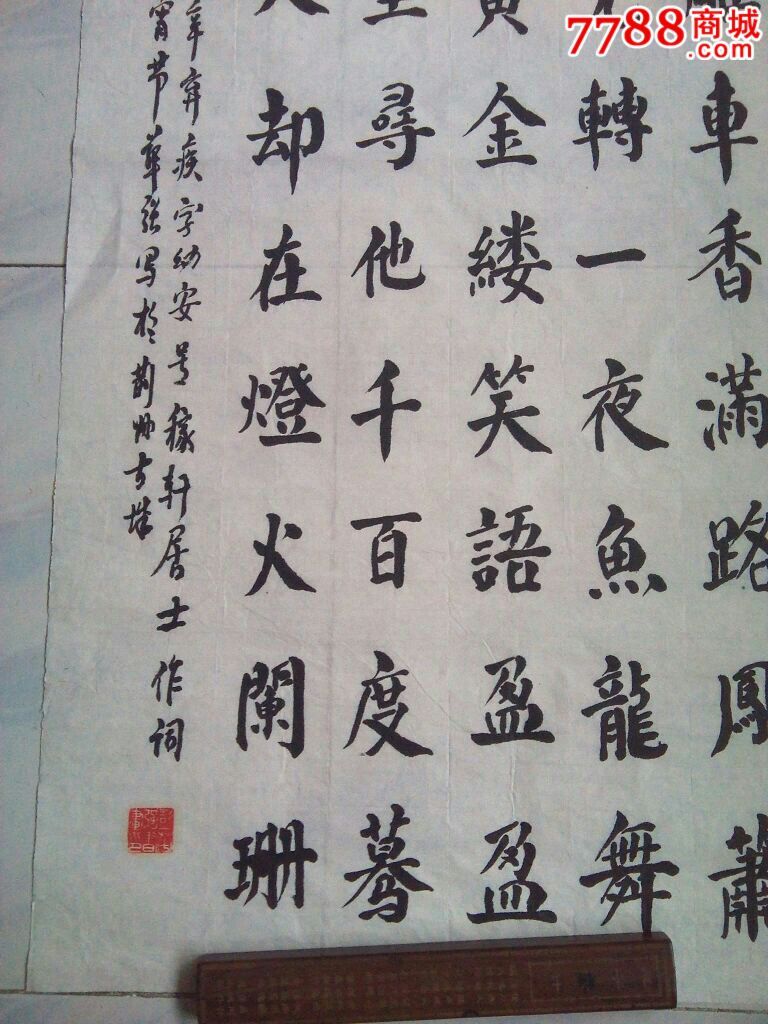 7788商城
.com
車香滿路鳳蕭
轉一夜魚龍舞
黄金縷笑語盈盈
尋他千百度驀
人却在燈火闌珊
辛弃疾字幼安号稼轩居士作词
宵节写於荆州古城